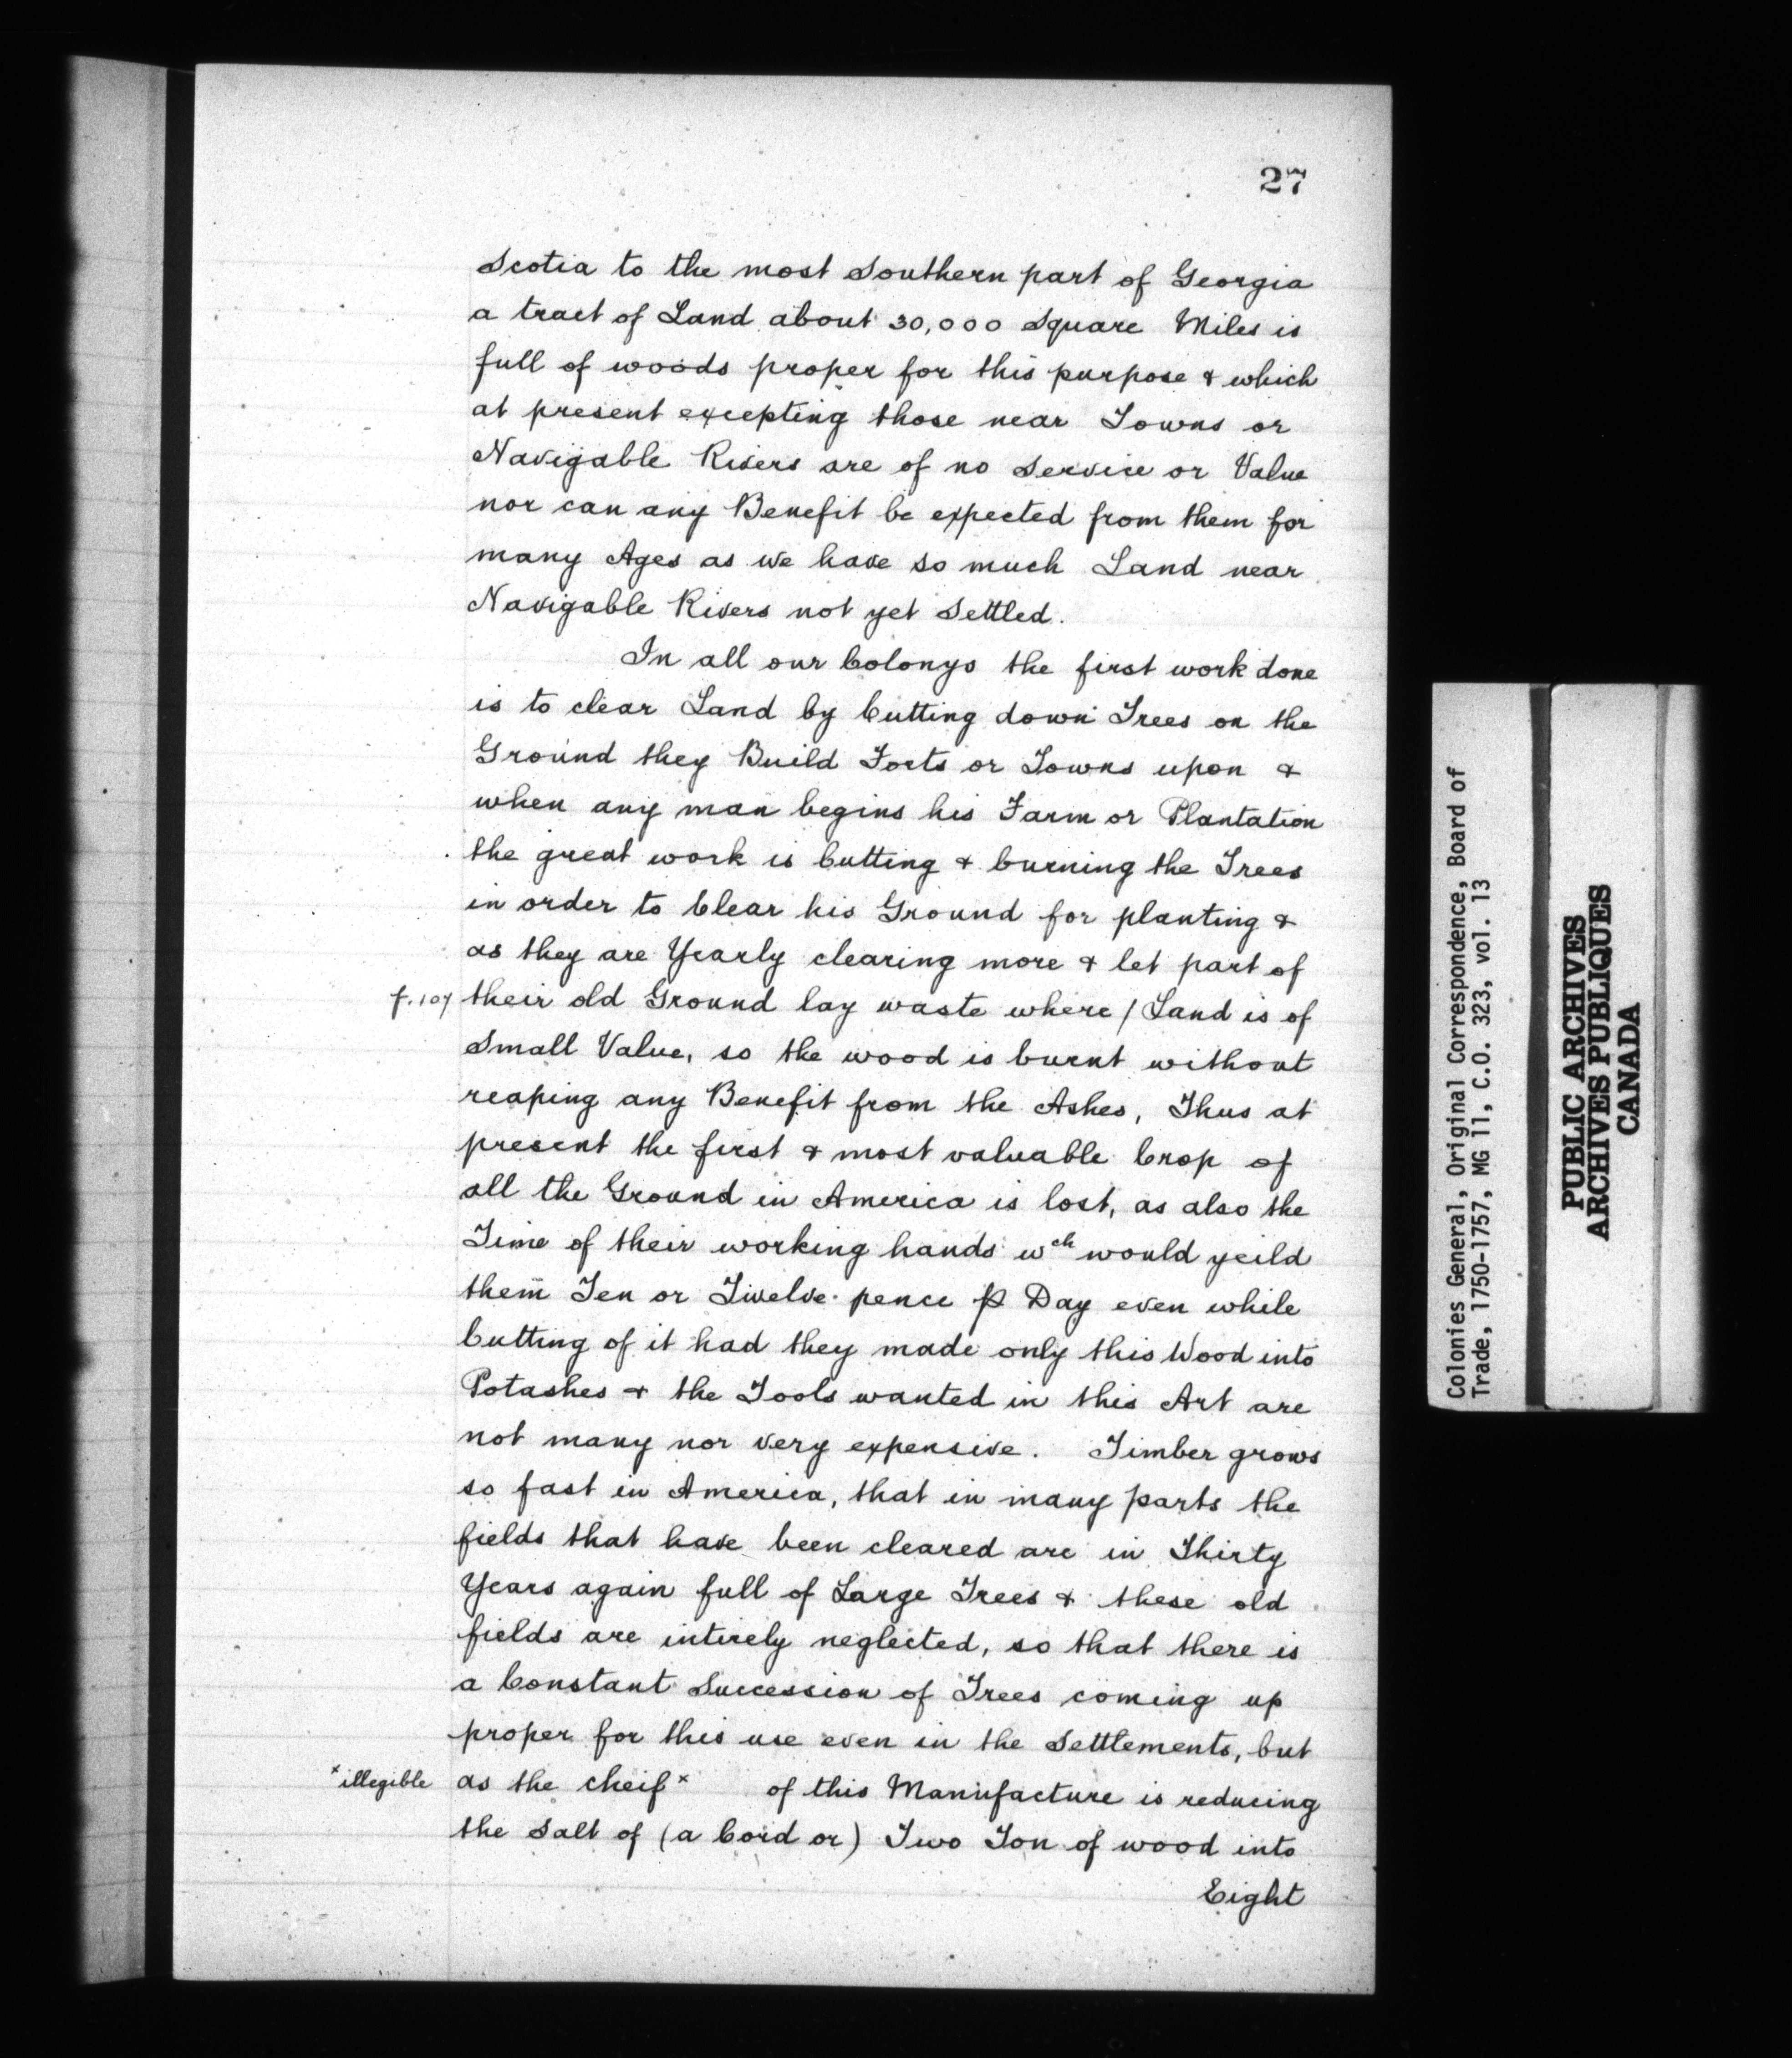 27
Scotia to the most Southern part of Georgia
a tract of Land about 30,000 Square Miles is
full of woods proper for this purpose & which
at present excepting those near Towns or
Navigable Rivers are of no Service or Value
nor can any Benefit be expected from them for
many Ages as we have so much Land near
Navigable Rivers not yet Settled.
In all our Colonys the first work done
is to clear Land by Cutting down Trees on the
Ground they Build Forts or Towns upon &
when any man begins his Farm or Plantation
the great work is Cutting & burning the Trees
in order to Clear his Ground for planting &
as they are Yearly clearing more & let part of
f.107 their old Ground lay waste where / Land is of
Small Value, so the wood is burnt without
reaping any Benefit from the Ashes, Thus at
present the first & most valuable Crop of
all the Ground in America is lost, as also the
Time of their working hands wch would yeild
them Ten or Twelve pence ⅌ Day even while
Cutting of it had they made only this Wood into
Potashes & the Tools wanted in this Art are
not many nor very expensive. Timber grows
so fast in America, that in many parts the
fields that have been cleared are in Thirty
Years again full of Large Trees & these old
fields are intirely neglected, so that there is
a Constant Succession of Trees coming up
proper for this use even in the Settlements, but
x illegible as the cheif x of this Manufacture is reducing
the Salt of (a Cord or) Two Ton of wood into
Eight
Colonies General, Original Correspondence, Board of
Trade, 1750-1757, MG 11, C.O. 323, vol. 13
PUBLIC ARCHIVES
ARCHIVES PUBLIQUES
CANADA